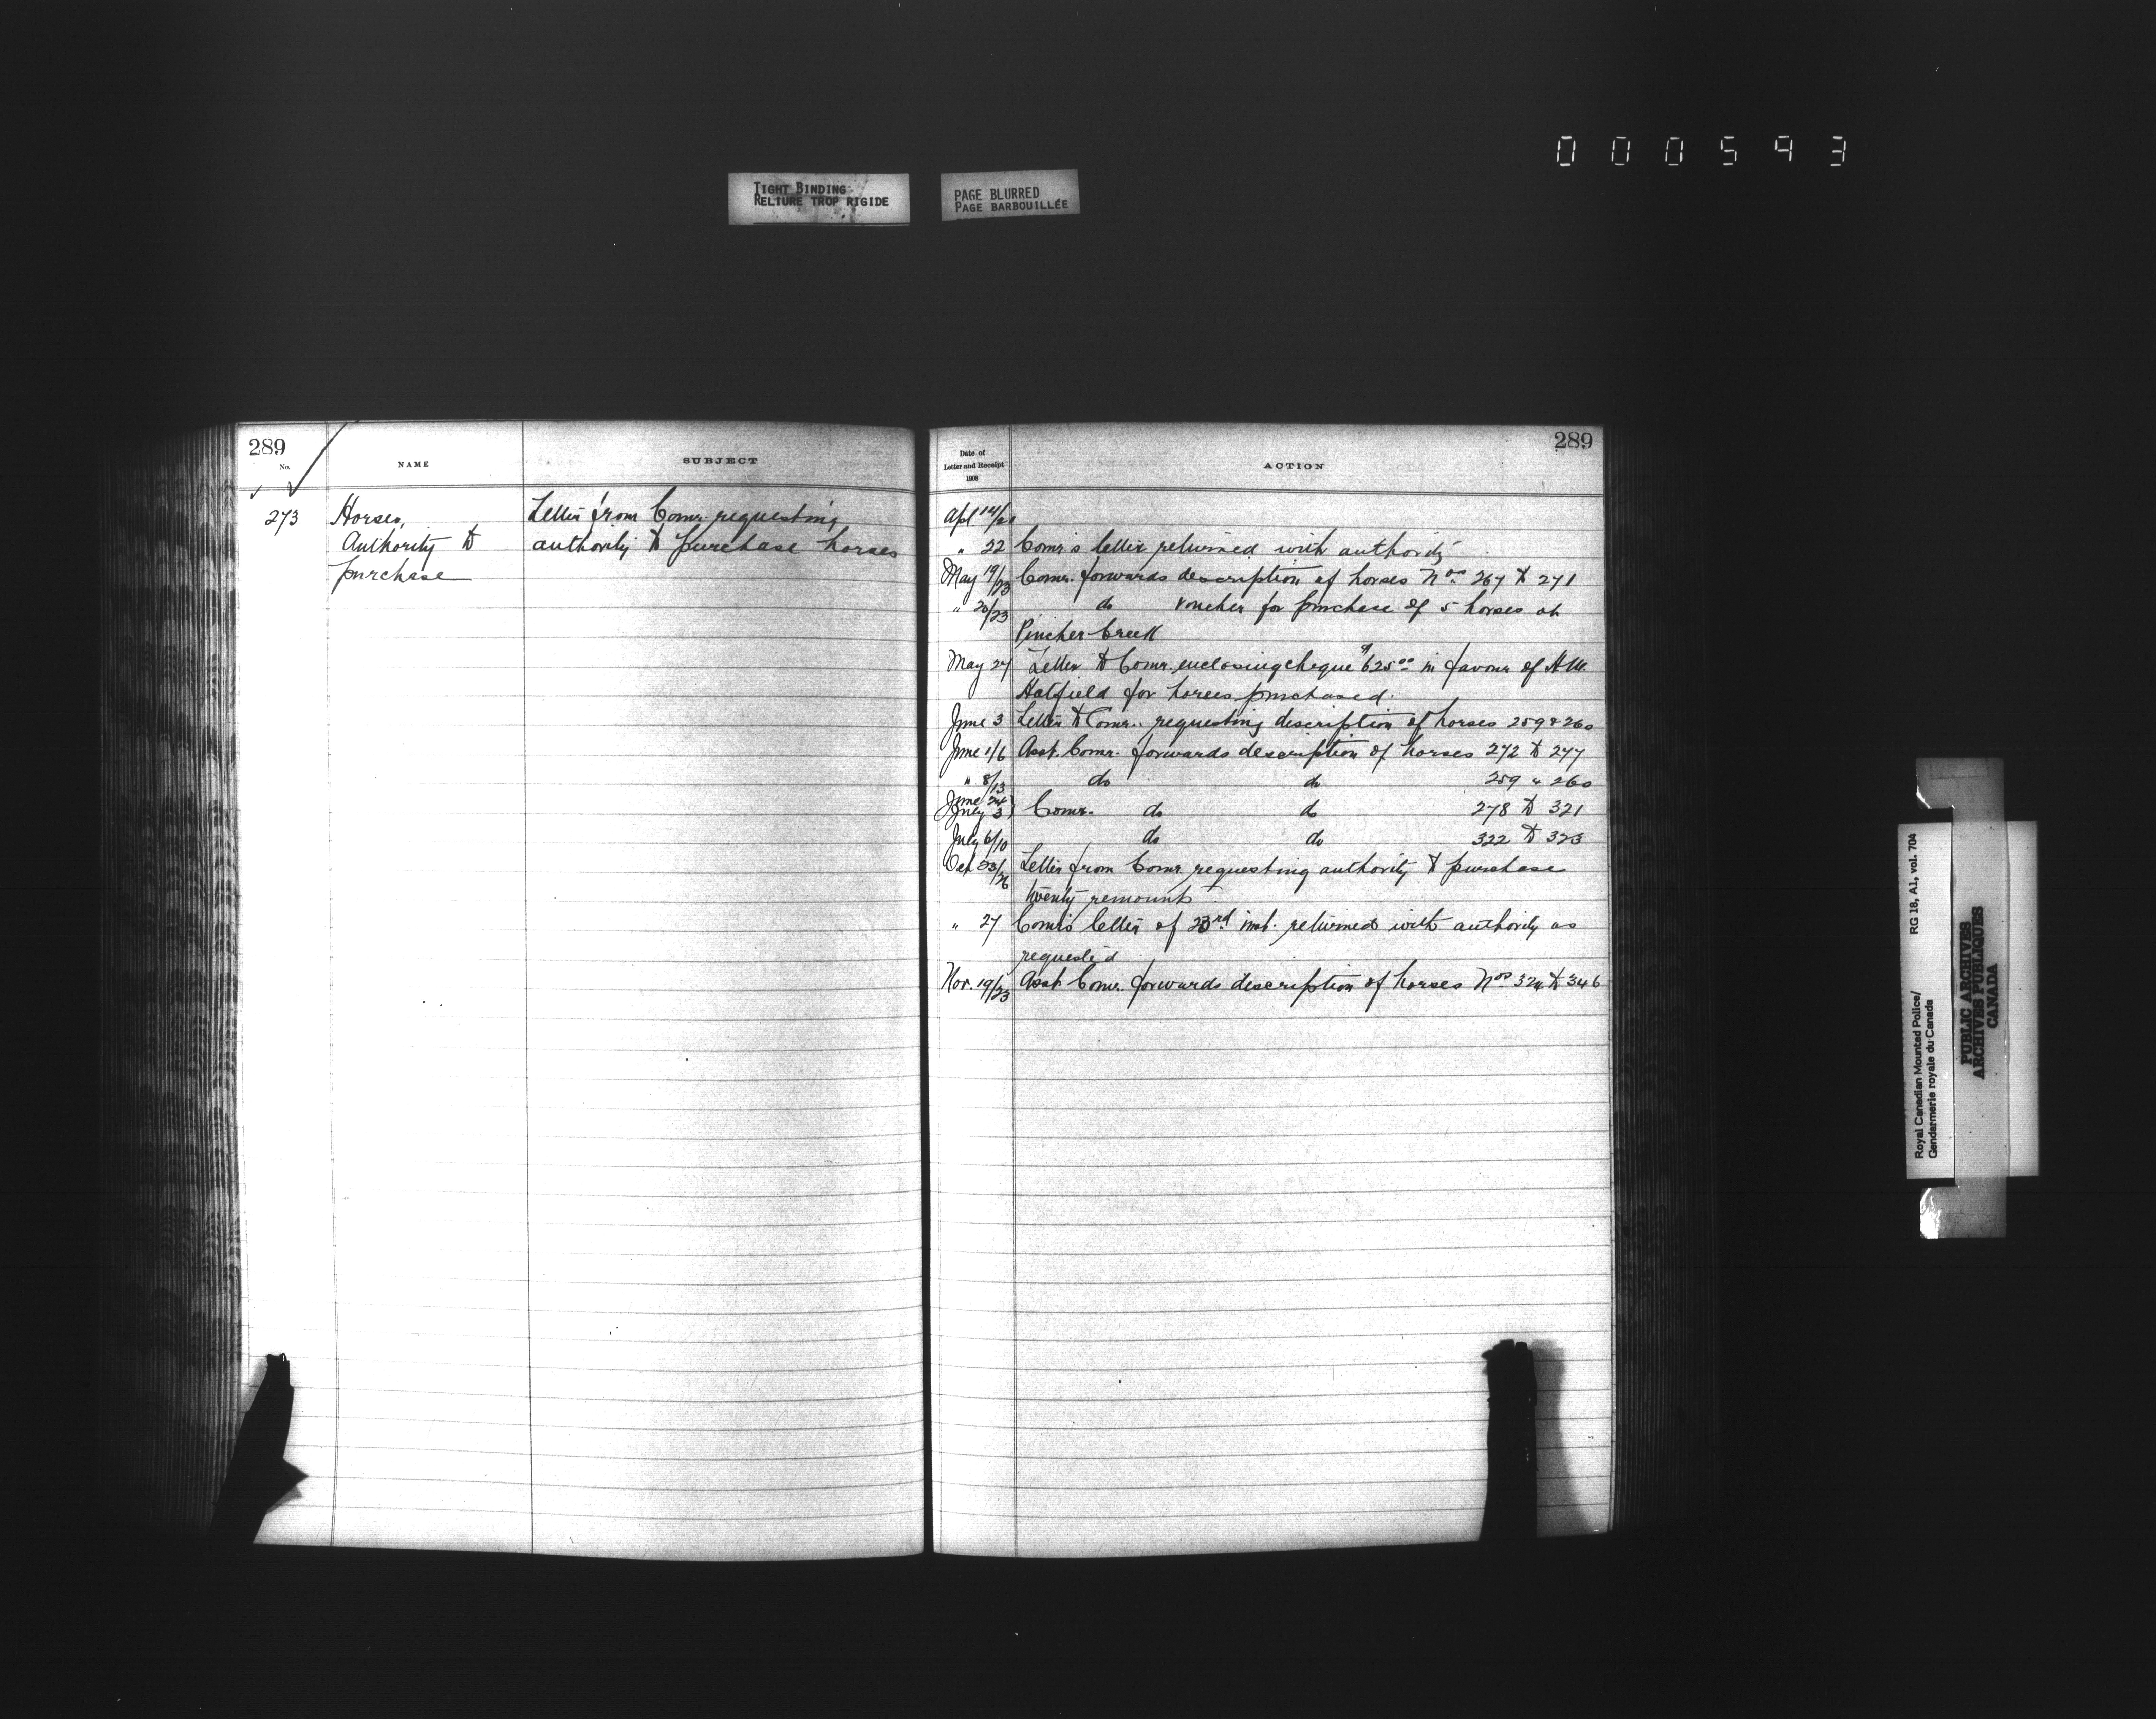 000593
TIGHT BINDING
RELIURE TROP RIGIDE
PAGE BLURRED
PAGE BARBOUILLÉE
289
No.
NAME
SUBJECT
273
Horses,
Authority to
purchase
Letter from Comr. requesting
authority to purchase horses
289
Date of
Letter and Receipt
1908
ACTION
Apl 14/21
" 22 Comr's letter returned with authority
May 19/23 Comr. forwards description of horses Nos. 267 to 271
" 20/23 do voucher for purchase of 5 horses at
Pincher Creek
May 27 Letter to Comr. enclosing cheque $625.00 in favour of H.W.
Hatfield for horses purchased.
June 3 Letter to Comr. requesting description of horses 259 & 260
June 1/6 Asst. Comr. forwards description of horses 272 to 277
" 8/13 do do 259 & 260
June 24
July 3 } Comr. do do 278 to 321
July 6/10 do do 322 to 323
Oct 23/26 Letter from Comr. requesting authority to purchase
twenty remounts
" 27 Comr's letter of 23rd inst. returned with authority as
requested
Nov. 19/23 Asst Comr. forwards description of horses Nos 324 to 346
Royal Canadian Mounted Police/
Gendarmerie royale du Canada
RG 18, A1, vol. 704
PUBLIC ARCHIVES
ARCHIVES PUBLIQUES
CANADA